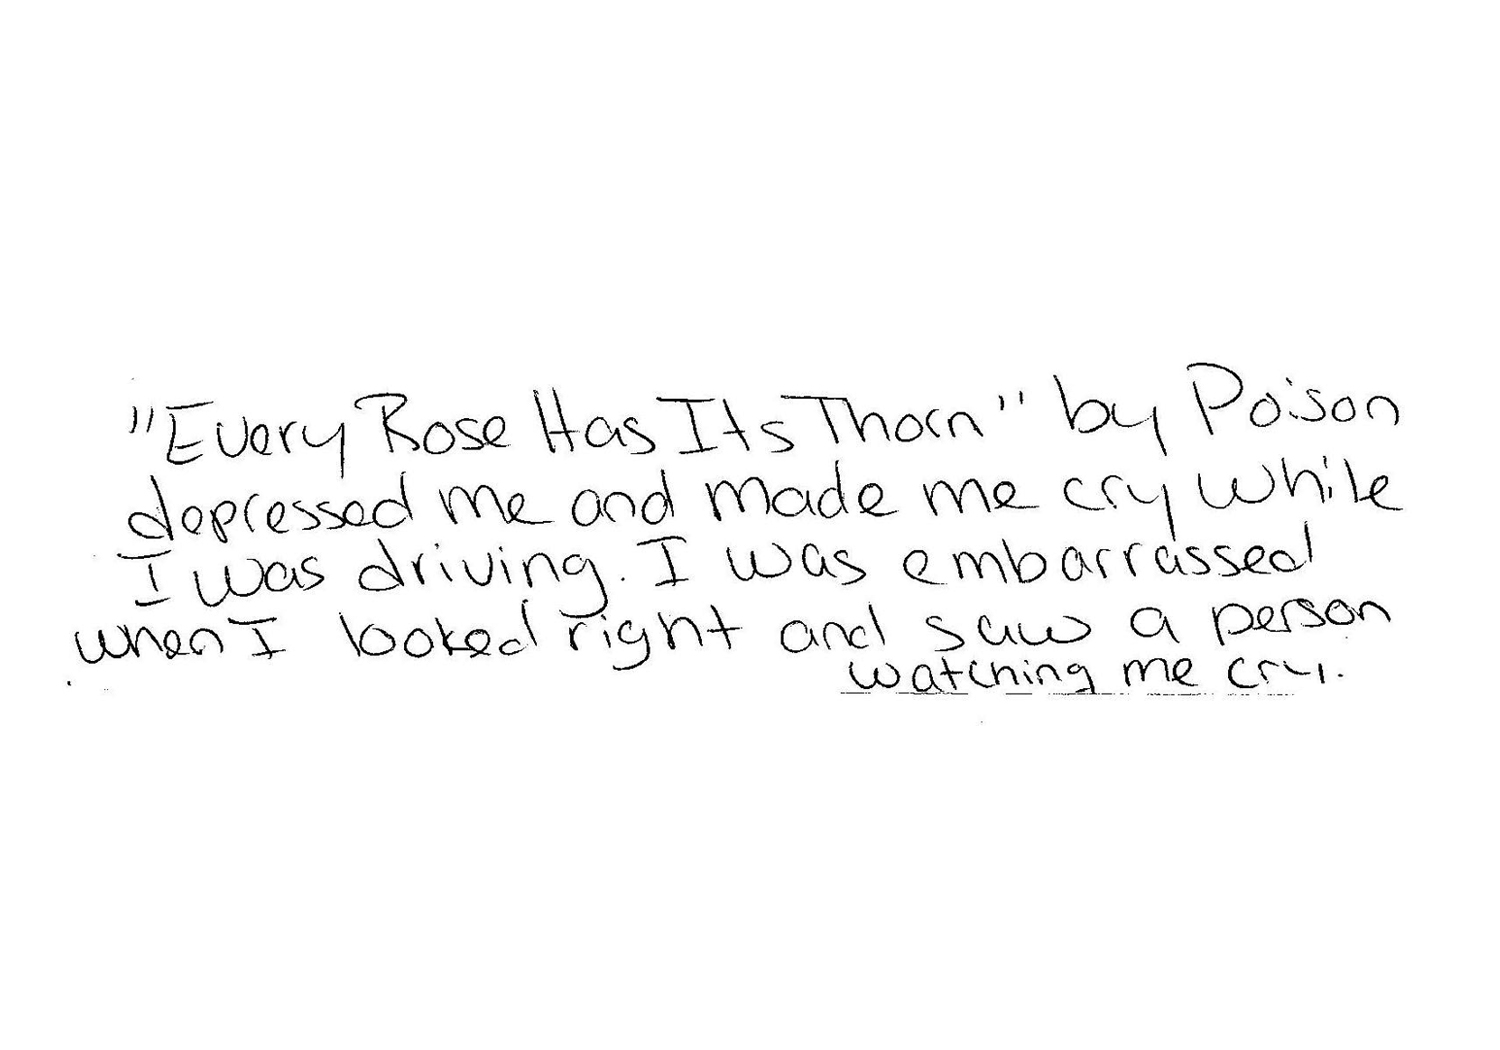 "Every Rose Has Its Thorn" by Poison
depressed me and made me cry while
I was driving. I was embarrassed
when I looked right and saw a person
watching me cry.